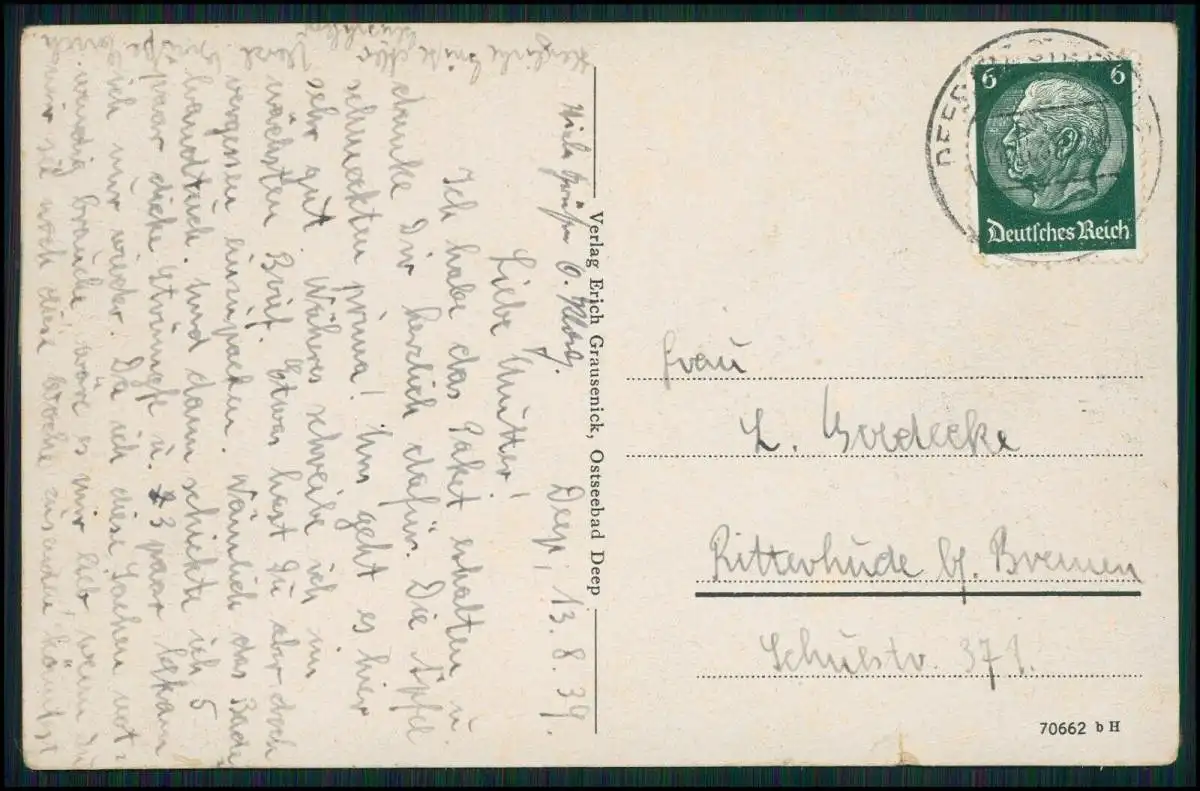 Deep, 13.8.39.
Liebe Mutter!
Ich habe das Paket erhalten u.
danke Dir herzlich dafür. Die Äpfel
schmeckten prima! Uns geht es hier
sehr gut. Wahres schreibe ich im
nächsten Brief. Etwas hast Du aber doch
vergessen einzupacken. Nämlich das Bade-
handtuch. Und dann schickte ich 5
paar dicke Strümpfe u. 3 paar
ich nur wieder. Da ich diese Sachen not-
wendig brauche, wäre es mir lieb wenn Du
mir sie noch diese Woche zusenden könntst.
Herzliche Grüße
Viele Grüße O.
Verlag Erich Grausenick, Ostseebad Deep
6 6
Deutsches Reich
Frau
L. Goedecke
Ritterhude bg. Bremen
Schulstr. 371.
70662 b H